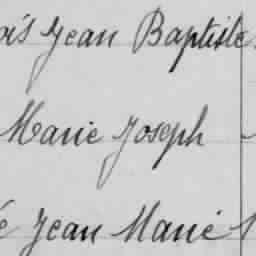 Jean Baptiste
Marie Joseph
Jean Marie